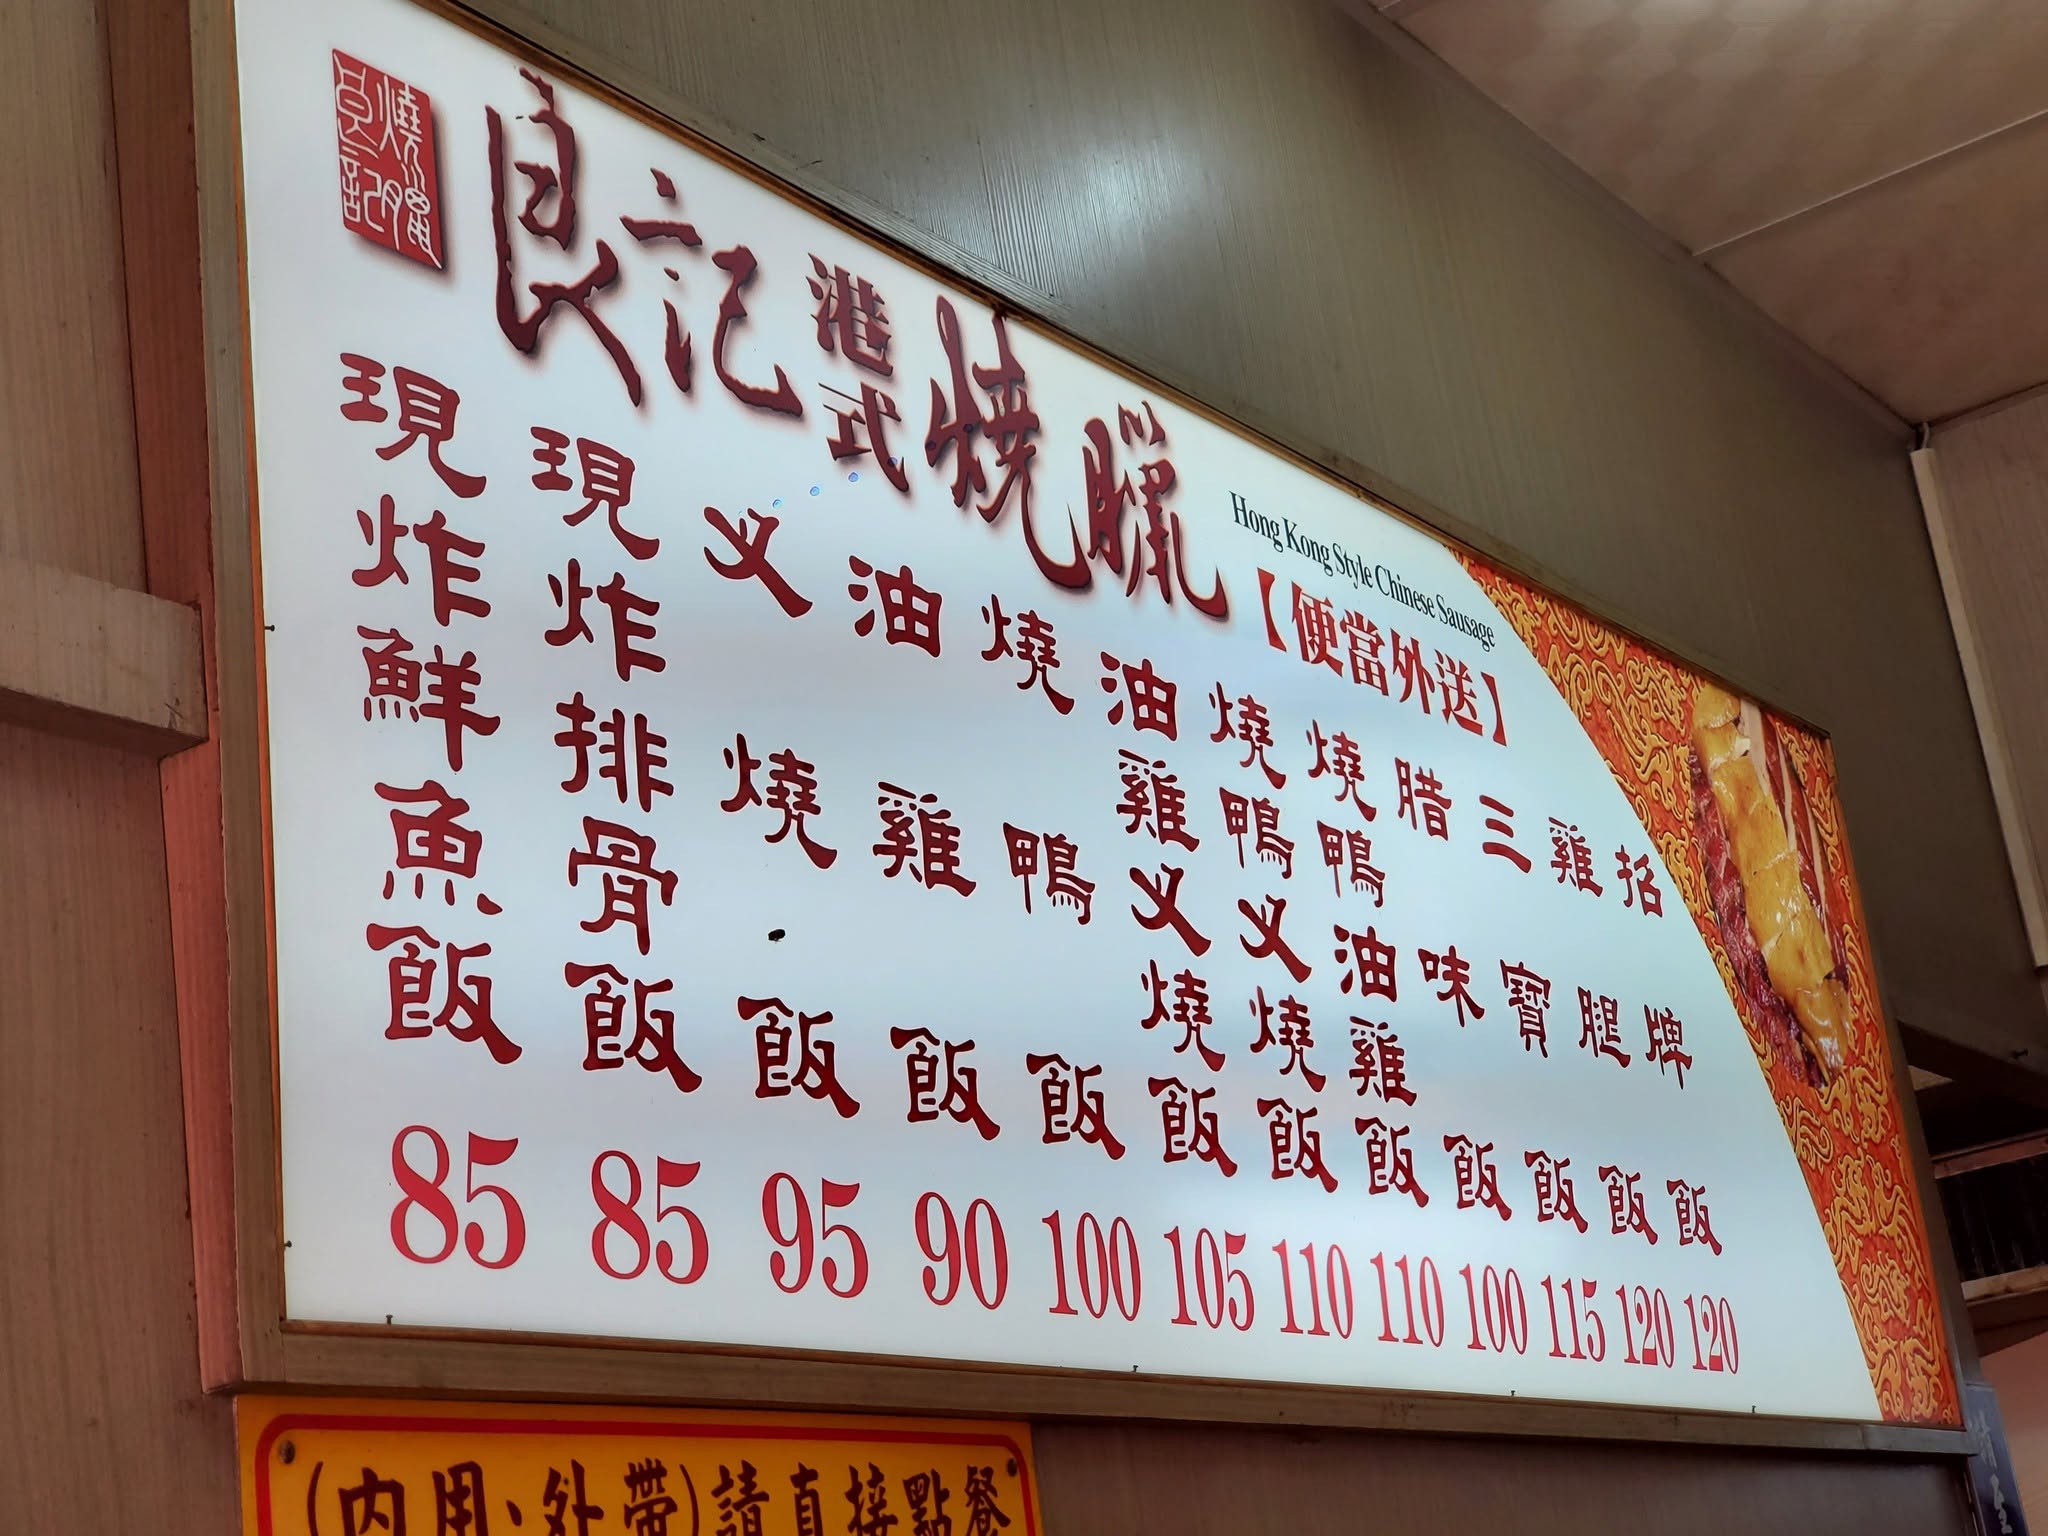 燒臘
良記
良記
港式
燒臘
Hong Kong Style Chinese Sausage
【便當外送】
招牌飯 120
雞腿飯 120
三寶飯 115
腊味飯 100
燒鴨油雞飯 110
燒鴨义燒飯 110
油雞义燒飯 105
燒鴨飯 100
油雞飯 90
义燒飯 95
現炸排骨飯 85
現炸鮮魚飯 85
(內用、外帶)請直接點餐